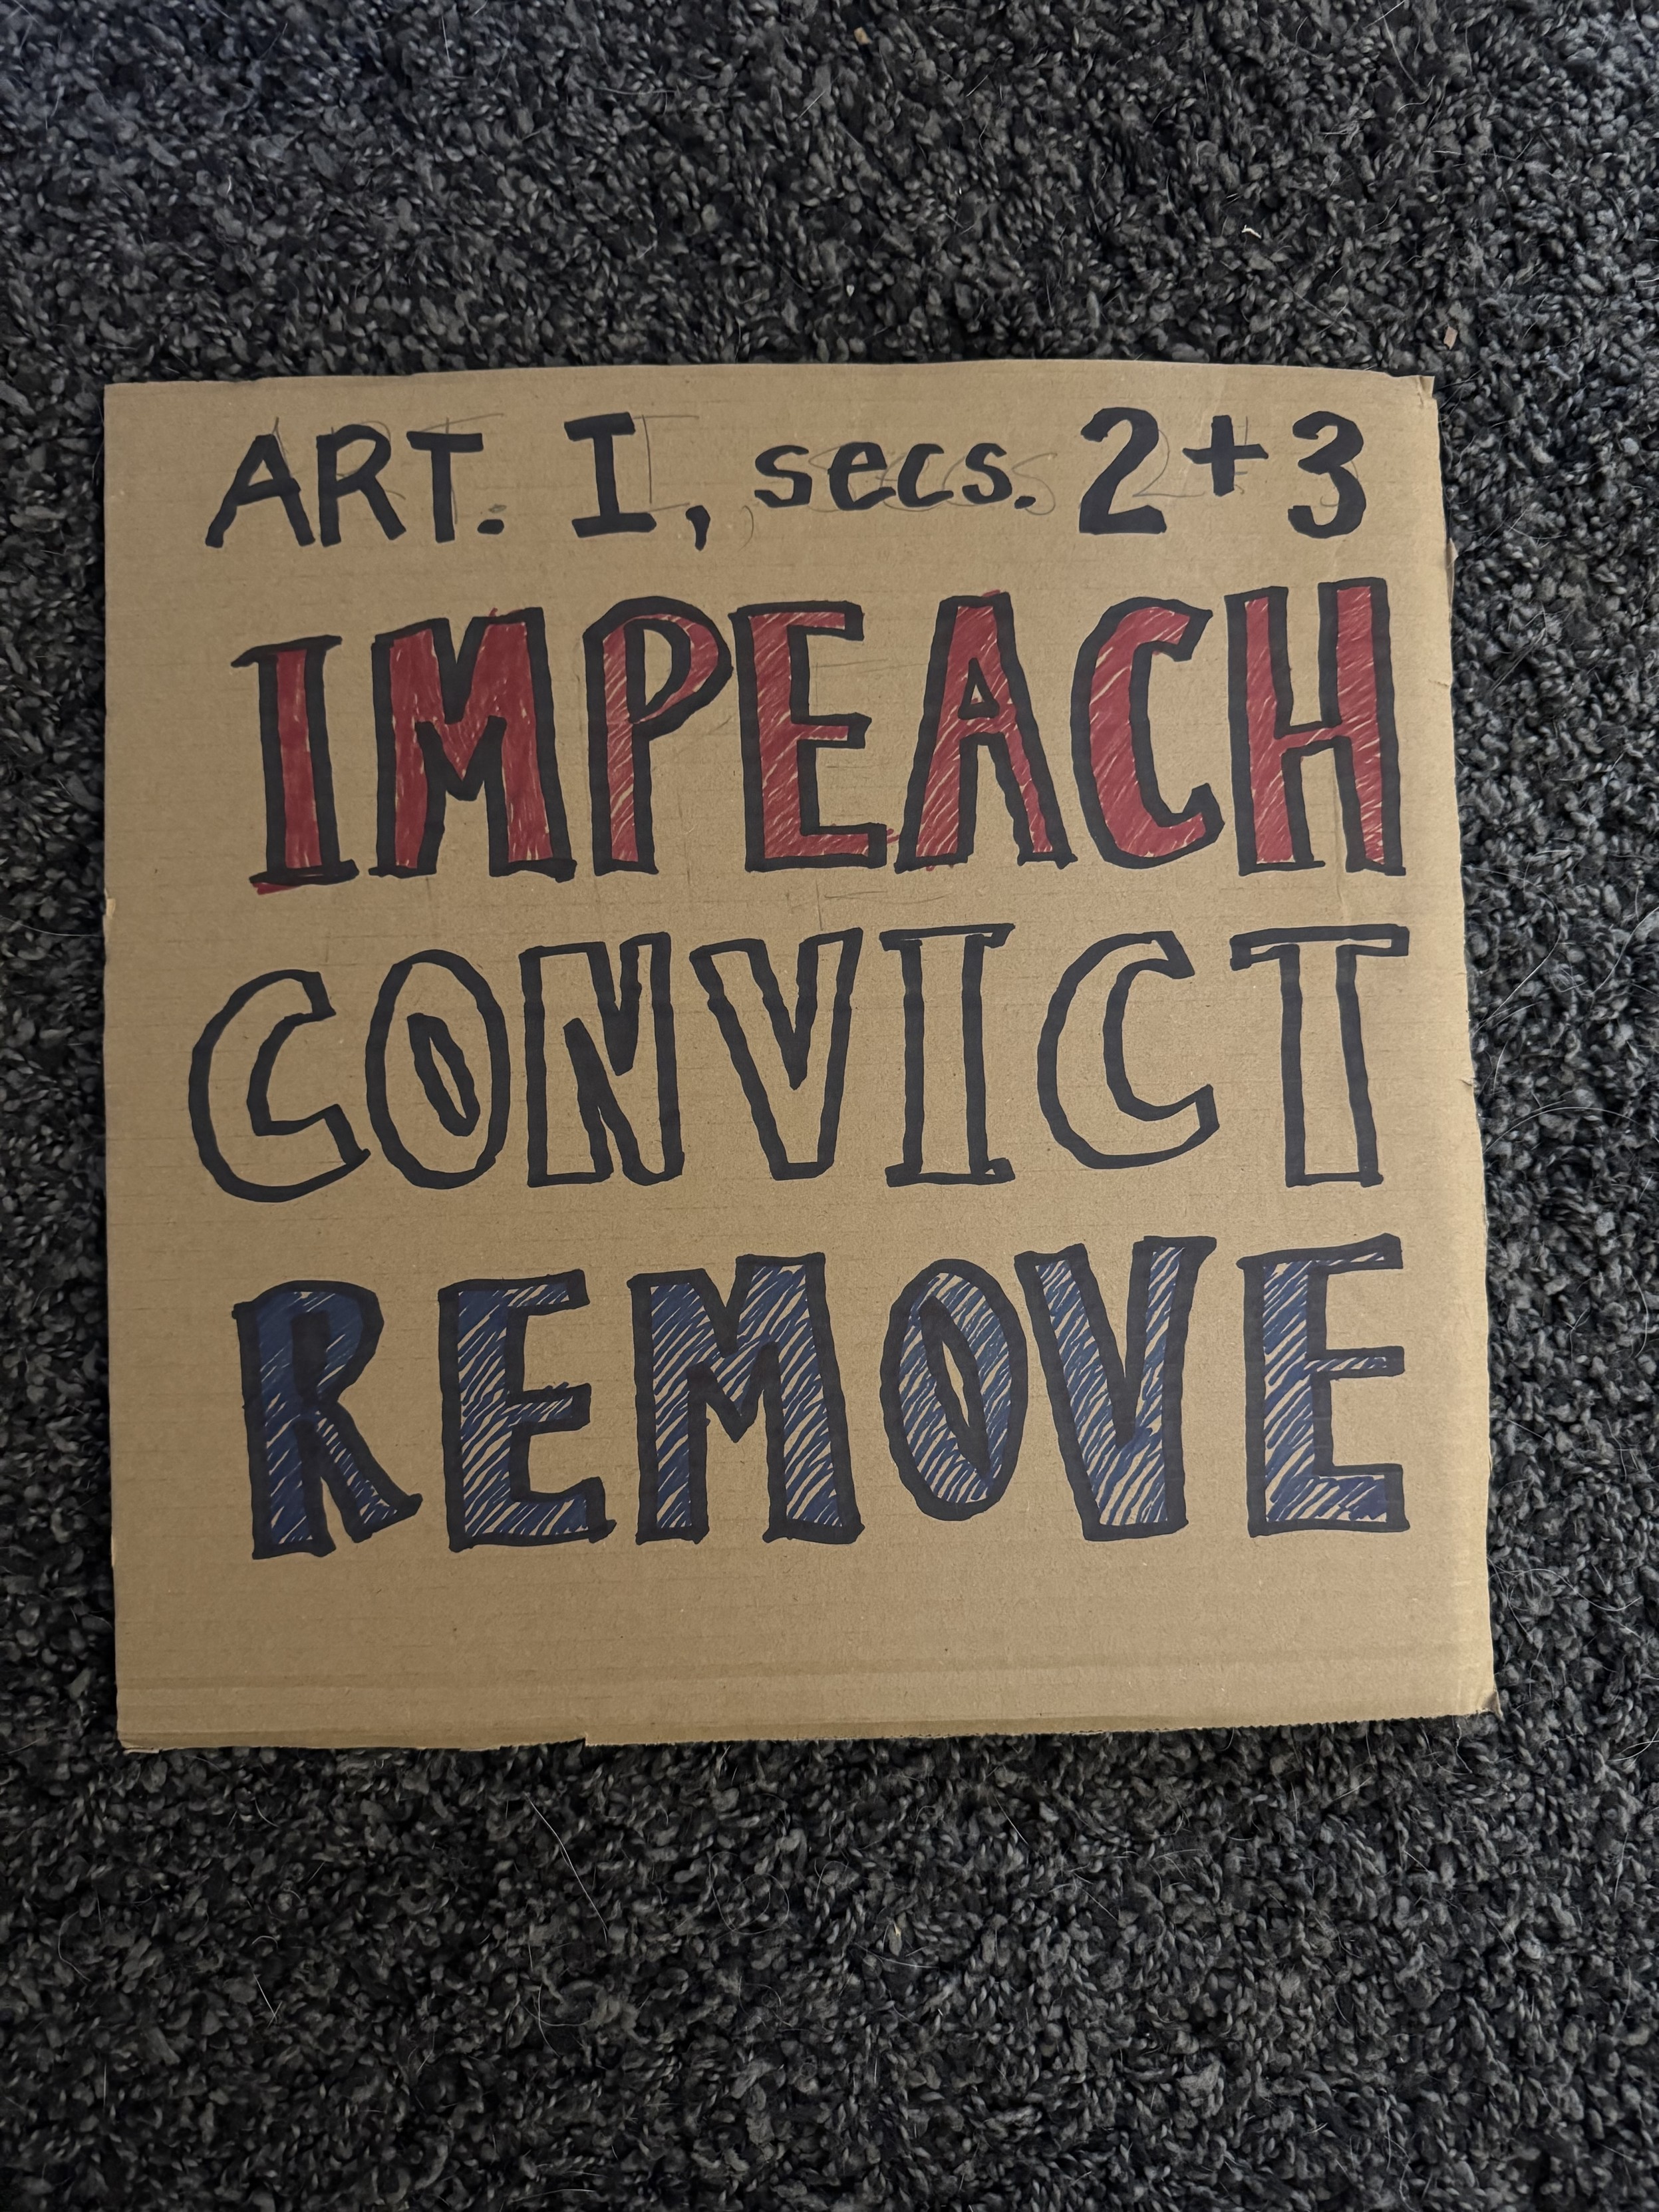 ART. I, secs. 2+3
IMPEACH
CONVICT
REMOVE